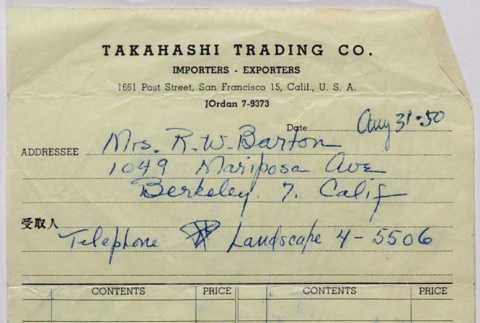 TAKAHASHI TRADING CO.
IMPORTERS - EXPORTERS
1661 Post Street, San Francisco 15, Calif., U. S. A.
JOrdan 7-9373
Date Aug 31-50
ADDRESSEE Mrs. R.W. Barton
1049 Mariposa Ave
Berkeley. 7. Calif
受取人
Telephone Landscape 4-5506
CONTENTS PRICE CONTENTS PRICE